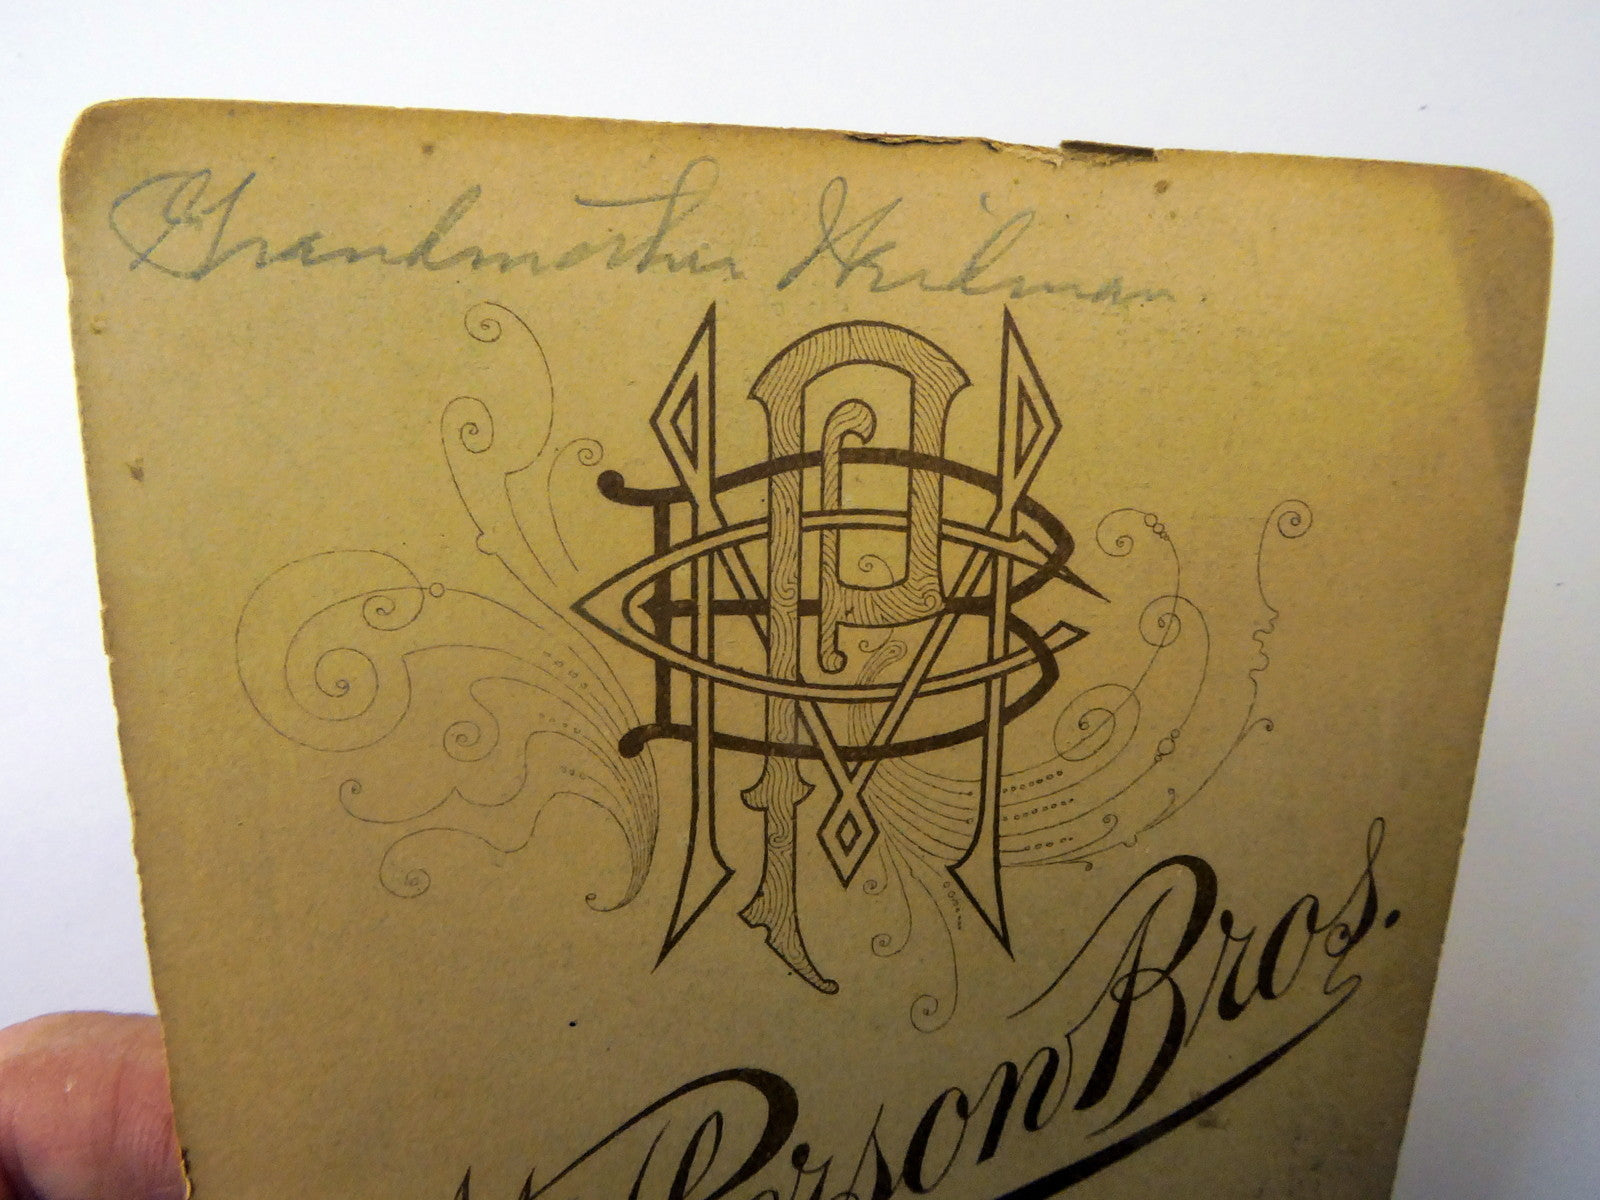 Grandmother Heidman
Pherson Bros.